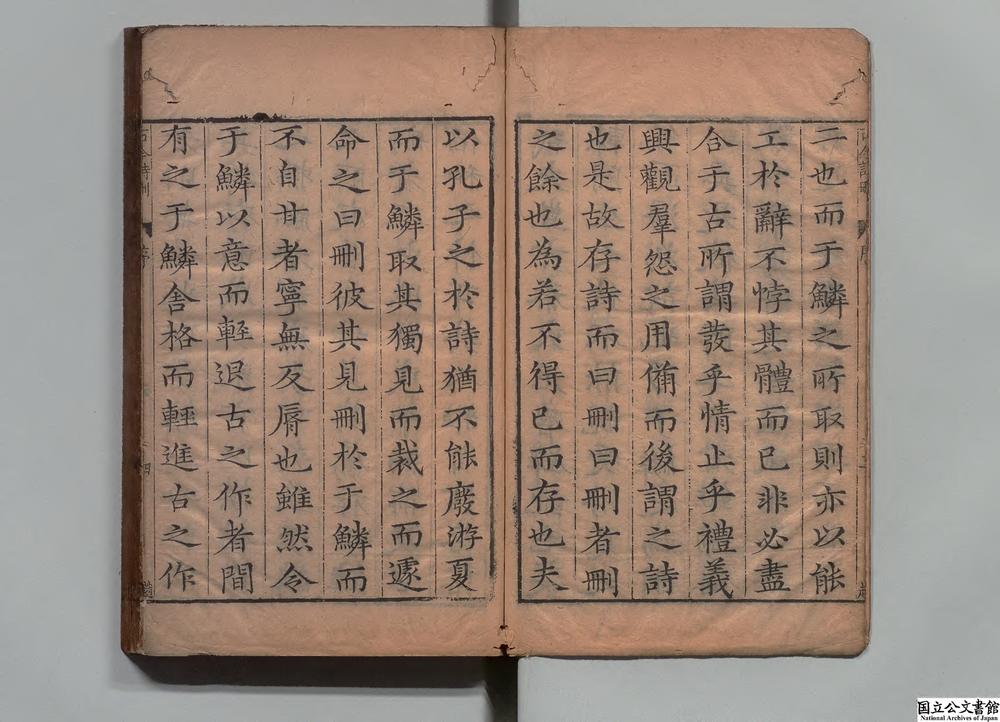 二也而于鱗之所取則亦以能
工於辭不悖其體而已非必盡
合于古所謂發乎情止乎禮義
興觀羣怨之用備而後謂之詩
也是故存詩而曰刪曰刪者刪
之餘也為若不得已而存也夫
以孔子之於詩猶不能廢游夏
而于鱗取其獨見而裁之而遽
命之曰刪彼其見刪於于鱗而
不自甘者寧無反脣也雖然令
于鱗以意而輕退古之作者間
有之于鱗舍格而輕進古之作
古今詩刪
序
四
国立公文書館
National Archives of Japan